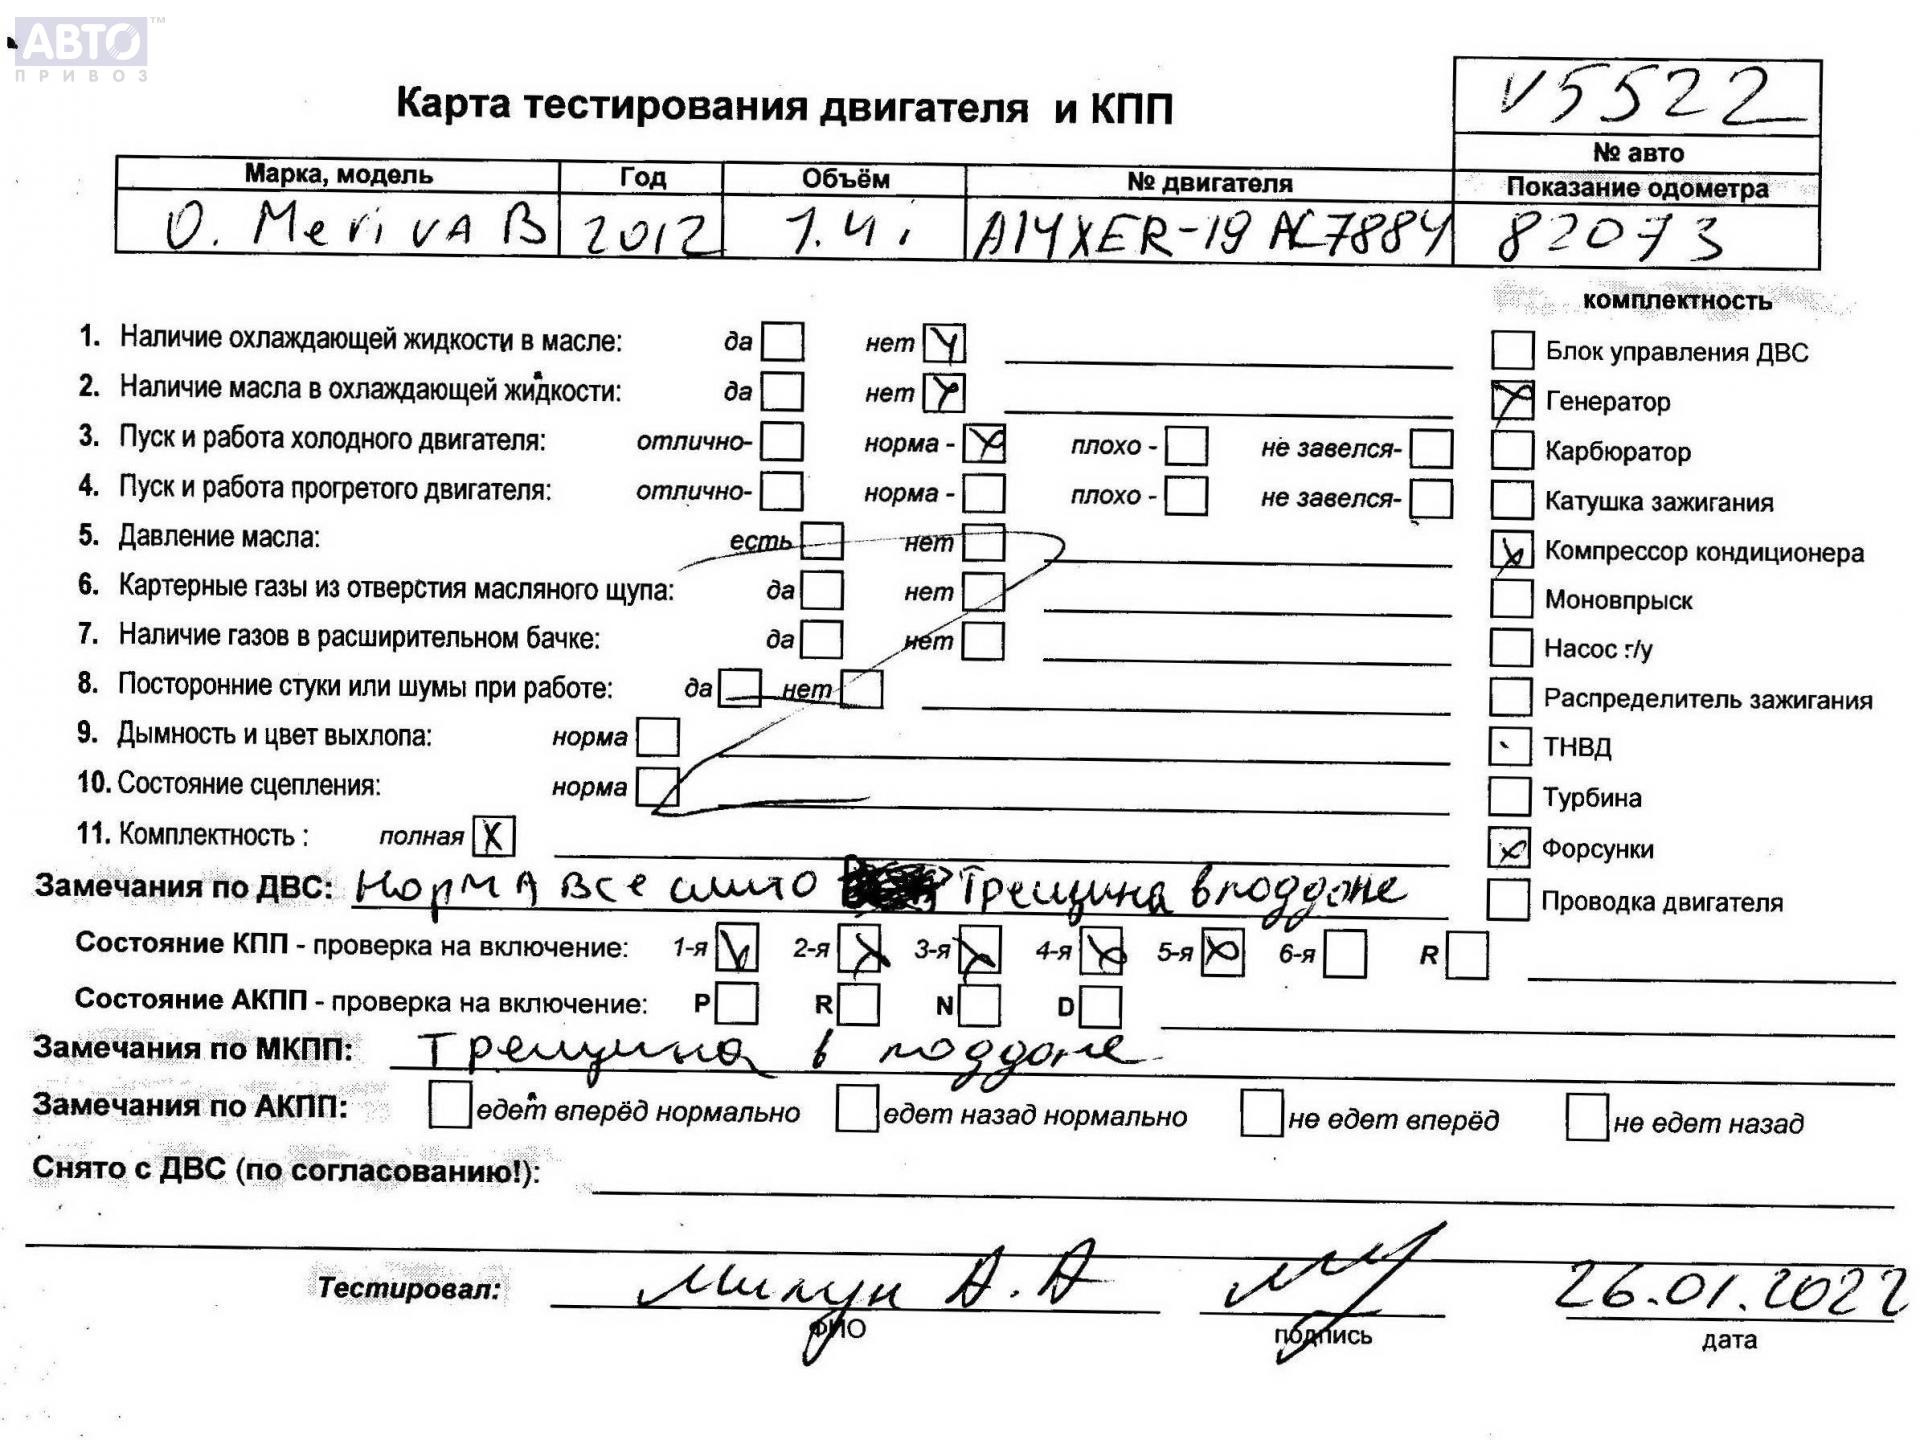 АВТО™
ПРИВОЗ
V5522
Карта тестирования двигателя и КПП
№ авто
Марка, модель Год Объём № двигателя Показание одометра
O. MerivA B 2012 1.4i A14XER-19AC7884 82073
комплектность
1. Наличие охлаждающей жидкости в масле: да нет Блок управления ДВС
2. Наличие масла в охлаждающей жидкости: да нет Генератор
3. Пуск и работа холодного двигателя: отлично- норма - плохо - не завелся- Карбюратор
4. Пуск и работа прогретого двигателя: отлично- норма - плохо - не завелся- Катушка зажигания
5. Давление масла: есть нет Компрессор кондиционера
6. Картерные газы из отверстия масляного щупа: да нет Моновпрыск
7. Наличие газов в расширительном бачке: да нет Насос г/у
8. Посторонние стуки или шумы при работе: да нет Распределитель зажигания
9. Дымность и цвет выхлопа: норма ТНВД
10. Состояние сцепления: норма Турбина
11. Комплектность : полная Форсунки
Замечания по ДВС: Норма все слито Трещина в поддоне Проводка двигателя
Состояние КПП - проверка на включение: 1-я 2-я 3-я 4-я 5-я 6-я R
Состояние АКПП - проверка на включение: P R N D
Замечания по МКПП: Трещина в поддоне
Замечания по АКПП: едет вперёд нормально едет назад нормально не едет вперёд не едет назад
Снято с ДВС (по согласованию!):
Тестировал: Милун А.А 26.01.2022
ФИО подпись дата